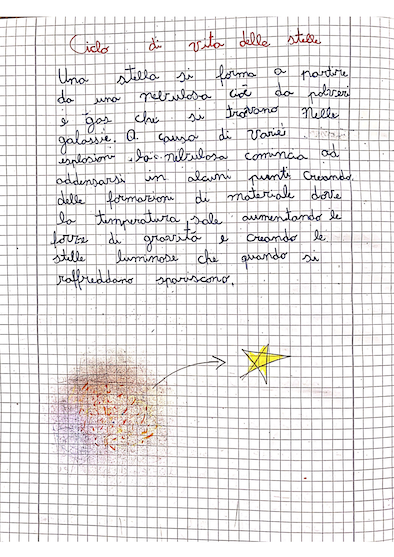 Ciclo di vita delle stelle
Una stella si forma a partire
da una nebulosa cioè da polveri
e gas che si trovano nelle
galassie. A causa di varie
esplosioni la nebulosa comincia ad
addensarsi in alcuni punti creando
delle formazioni di materiale dove
la temperatura sale aumentando le
forze di gravità e creando le
stelle luminose che quando si
raffreddano spariscono.